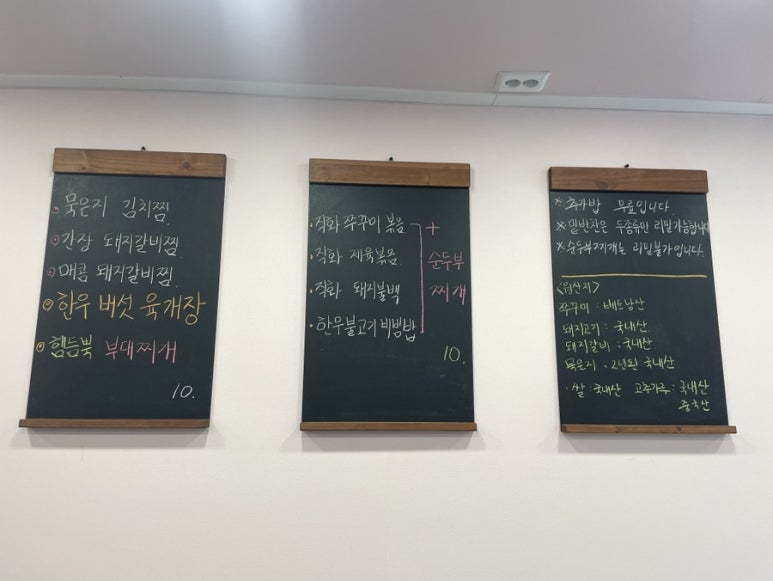 묵은지 김치찜.
간장 돼지갈비찜.
매콤 돼지갈비찜.
한우 버섯 육개장
햄듬뿍 부대찌개
10.
· 직화 쭈꾸미 볶음
· 직화 제육볶음.
· 직화 돼지불백
· 한우불고기 비빔밥
+
순두부
찌개
10.
※ 추가밥 무료입니다.
※ 밑반찬은 두종류만 리필가능합니다
※ 순두부찌개는 리필불가입니다.
<원산지>
쭈꾸미 : 베트남산
돼지고기 : 국내산
돼지갈비 : 국내산
묵은지 : 2년된 국내산
· 쌀 : 국내산 고추가루 : 국내산
중국산